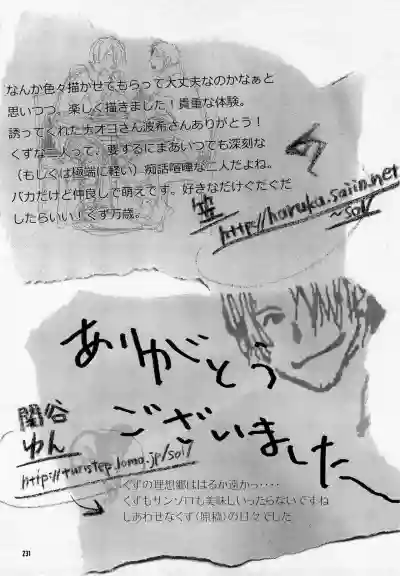 なんか色々描かせてもらって大丈夫なのかなぁと
思いつつ。楽しく描きました！貴重な体験。
誘ってくれたナオコさん波希さんありがとう！
くずな二人って、要するにまあいつでも深刻な
（もしくは極端に軽い）痴話喧嘩な二人だよね。
バカだけど仲良しで萌えです。好きなだけぐだぐだ
したらいい！くず万歳。
http://haruka.saiin.net
～soil/
ありがとう
ございました
関谷
ゆん
くずの理想郷ははるか遠かっ‥‥
くずもサンゾロも美味しいったらないですね
しあわせなくず（原稿）の日々でした
231